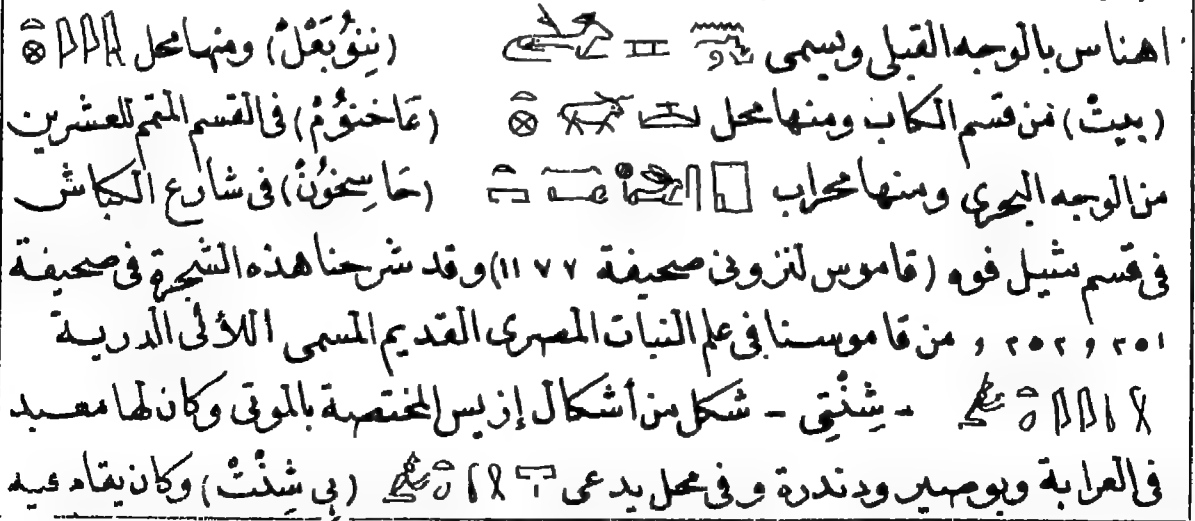 اهناس بالوجه القبلى ويسمى (نِينوُبَعْلْ) ومنها محل
(بيتْ) من قسم الكاب ومنها محل (عَاخنوُمْ) فى القسم المتمم للعشرين
من الوجه البحرى ومنها محراب (حَا سِخوُنْ) فى شارع الكباش
فى قسم شيل فوه (قاموس لنزونى صحيفة ١١٧٧) وقد شرحنا هذه الشجرة فى صحيفة
٢٥١ و ٢٥٢ و من قاموسنا فى علم النبات المصرى القديم المسمى اللألى الدرية
- شِنْتِى - شكل من أشكال إزيس المختصة بالموتى وكان لها معبد
فى العرابة وبوصير ودندرة وفى محل يدعى (بِى شِنْتْ) وكان يقام فيه